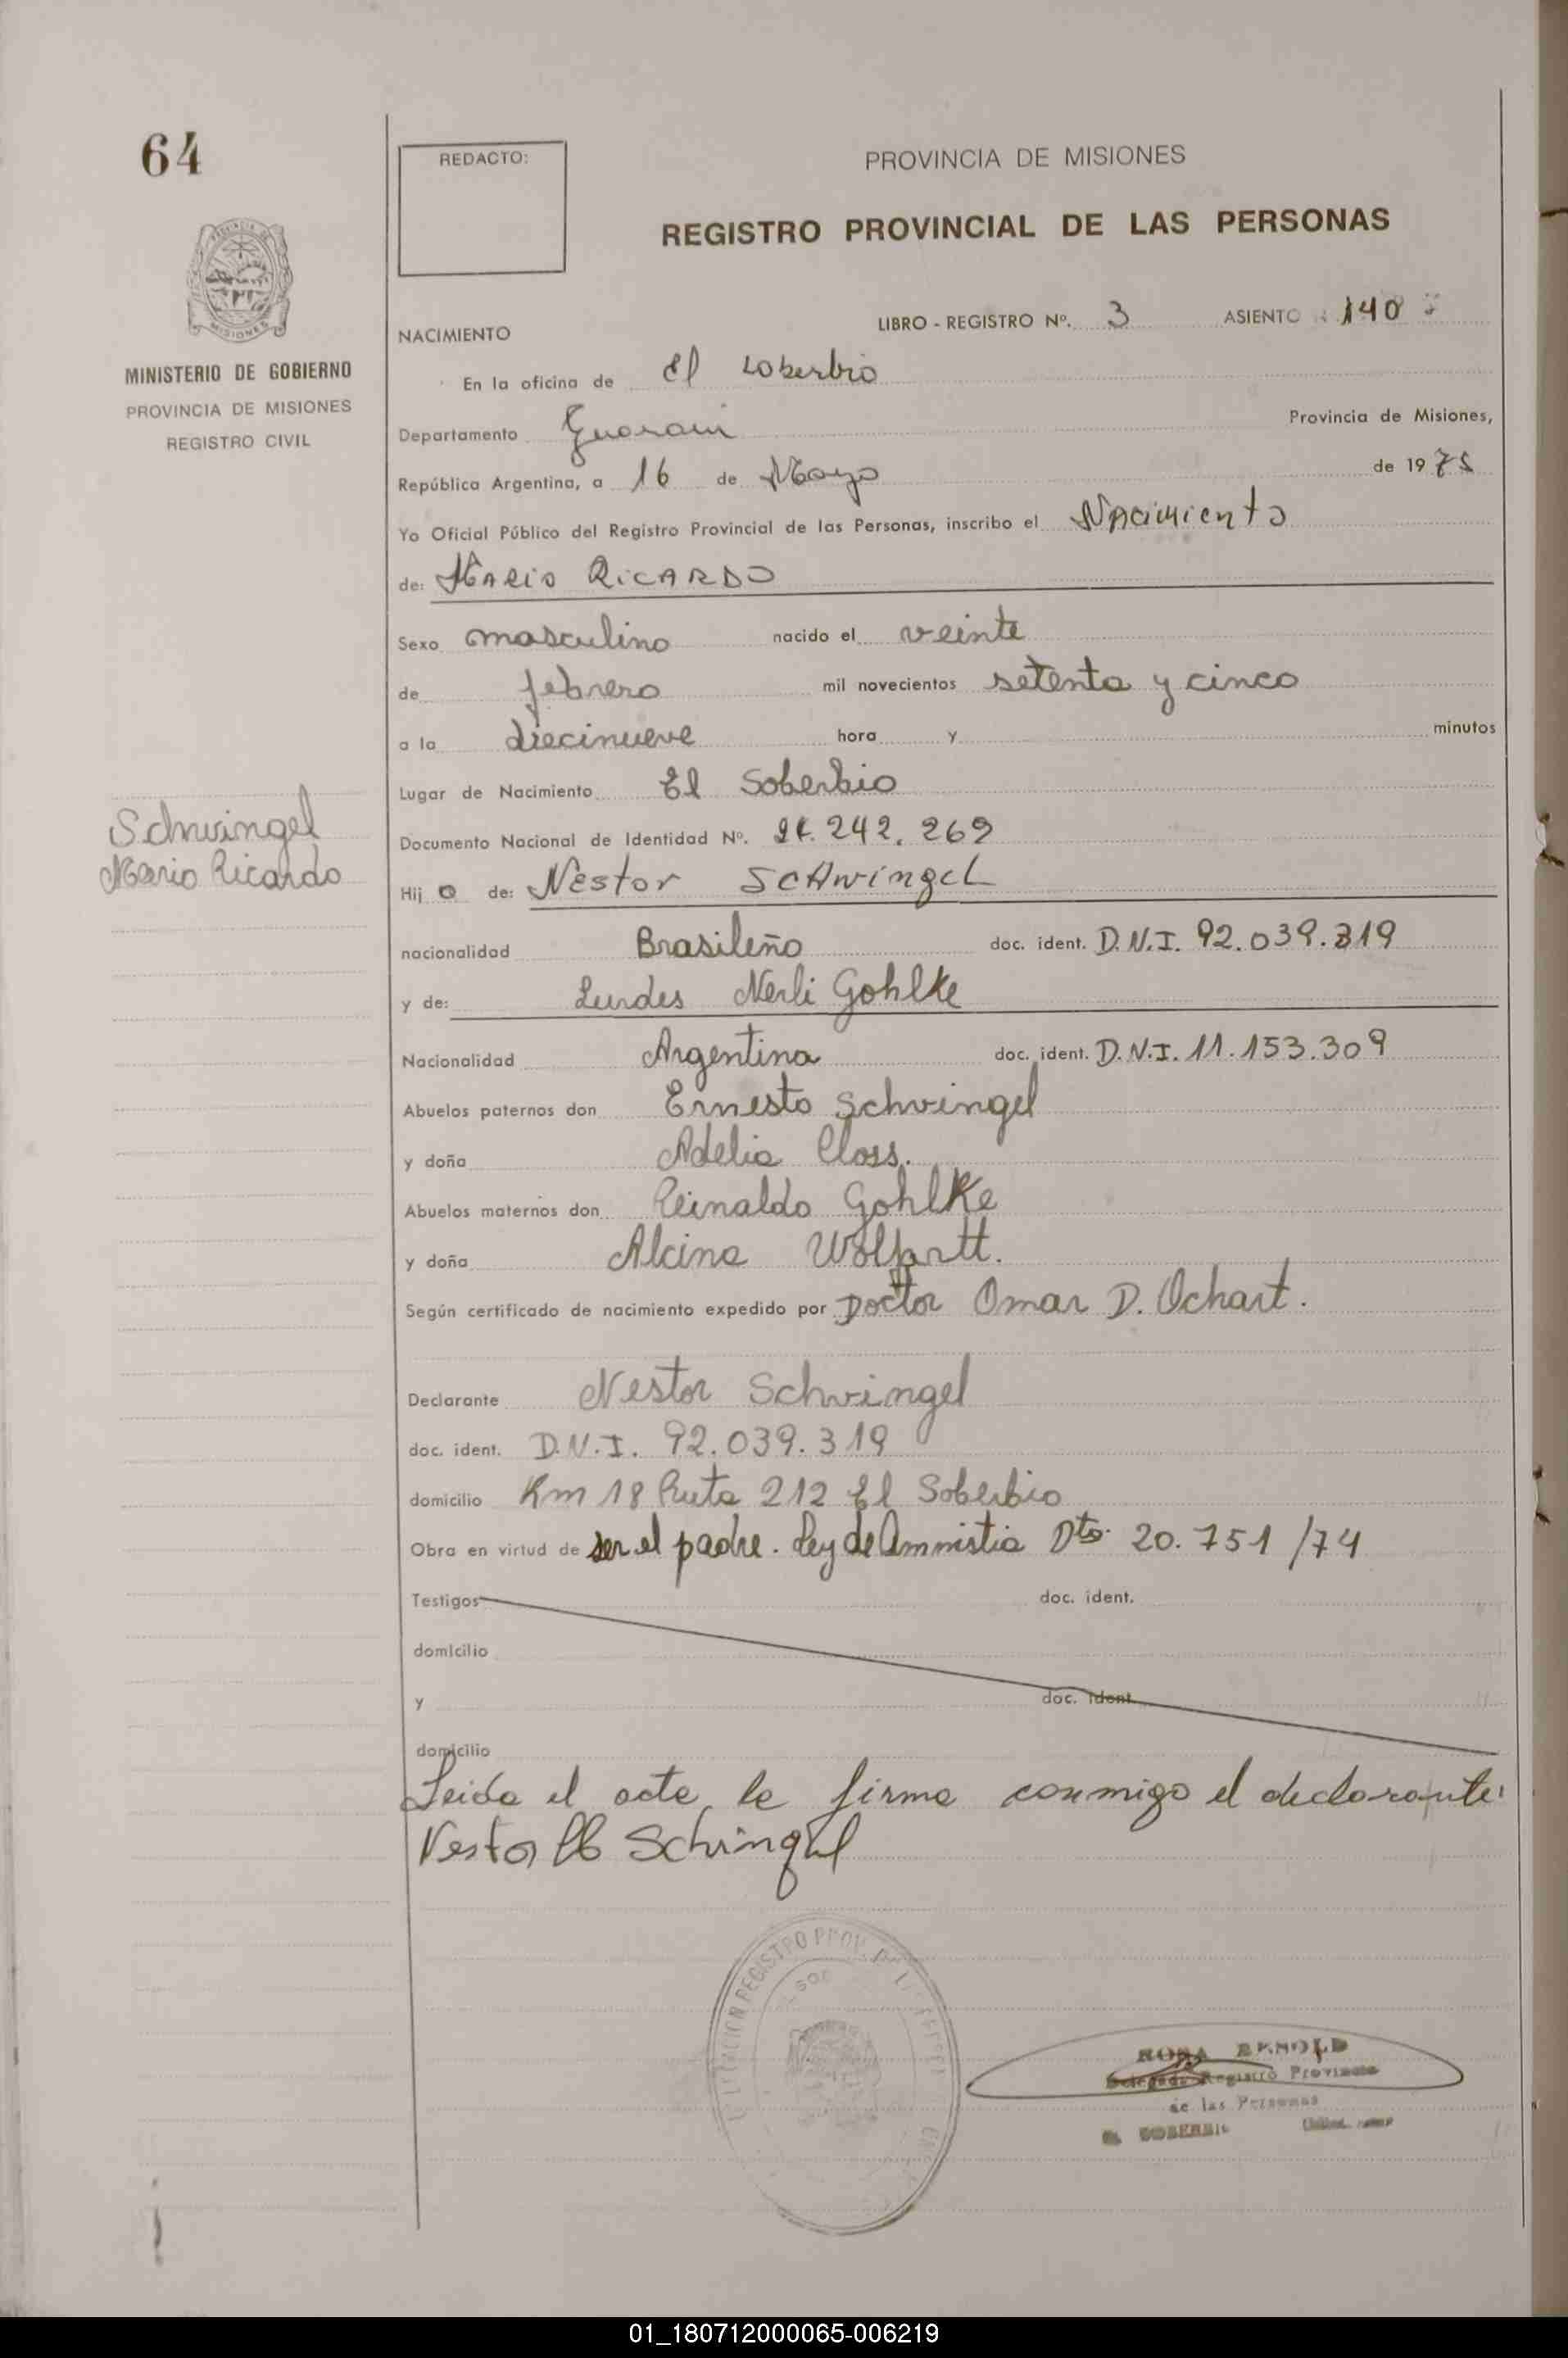 64
REDACTO:
PROVINCIA DE MISIONES
REGISTRO PROVINCIAL DE LAS PERSONAS
MISIONES
MINISTERIO DE GOBIERNO
PROVINCIA DE MISIONES
REGISTRO CIVIL
NACIMIENTO LIBRO - REGISTRO Nº. 3 ASIENTO 140
En la oficina de El Soberbio
Departamento Guarani Provincia de Misiones,
República Argentina, a 16 de Mayo de 1975
Yo Oficial Público del Registro Provincial de las Personas, inscribo el Nacimiento
de: MARIO RICARDO
Sexo masculino nacido el veinte
de febrero mil novecientos setenta y cinco
a la diecinueve hora y minutos
Lugar de Nacimiento El Soberbio
Schwingel
Mario Ricardo
Documento Nacional de Identidad Nº. 24.242.269
Hij o de: Nestor SCHwingeL
nacionalidad Brasileño doc. ident. D.N.I. 92.039.319
y de: Lurdes Nerli Gohlke
Nacionalidad Argentina doc. ident. D.N.I. 11.153.309
Abuelos paternos don Ernesto Schwingel
y doña Adelia Closs.
Abuelos maternos don Reinaldo Gohlke
y doña Alcina Wolfartt.
Según certificado de nacimiento expedido por Doctor Omar D. Ochart.
Declarante Nestor Schwingel
doc. ident. D.N.I. 92.039.319
domicilio Km 18 Ruta 212 El Soberbio
Obra en virtud de ser el padre. Ley de Ammistia Dto. 20.751/74
Testigos doc. ident.
domicilio
y doc. ident.
domicilio
Leida el acta, la firma conmigo el declarante:
Nestor Schingel
REGISTRO PROV.
ROSA BENOLD
Delegada Registro Provincial
de las Personas
EL SOBERBIO
01_180712000065-006219